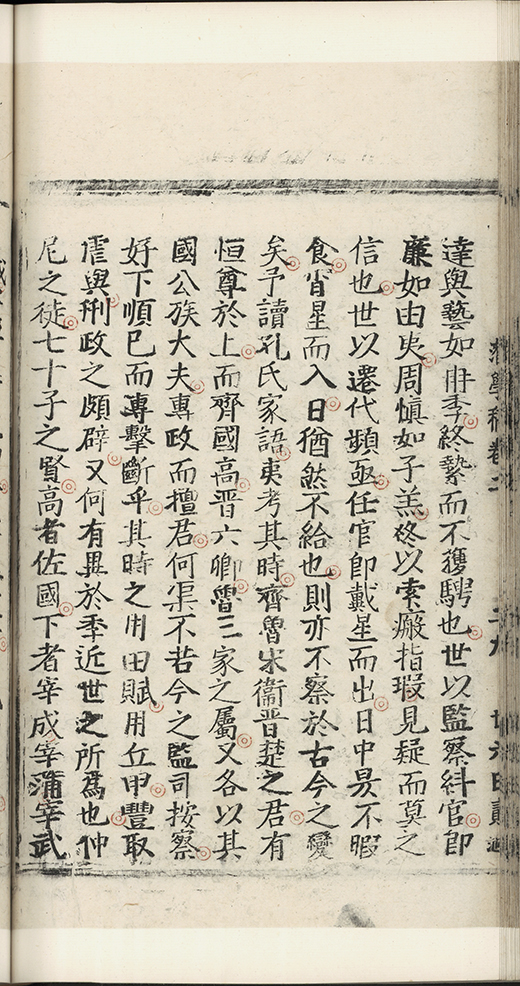 達與藝如冉季終縶而不獲騁也世以監察糾官即
廉如由夷周慎如子羔終以索瘢指瑕見疑而莫之
信也世以遷代頻亟任官即戴星而出日中昃不暇
食宵星而入日猶然不給也則亦不察於古今之變
矣予讀孔氏家語夷考其時齊魯宋衞晋楚之君有
恒尊於上而齊國高晋六卿魯三家之屬又各以其
國公族大夫專政而擅君何渠不若今之監司按察
好下順已而專擊斷乎其時之用田賦用丘甲豐取
虐與刑政之頗辟又何有異於季近世之所爲也仲
尼之徒七十子之賢高者佐國下者宰成宰蒲宰武
學稿卷二